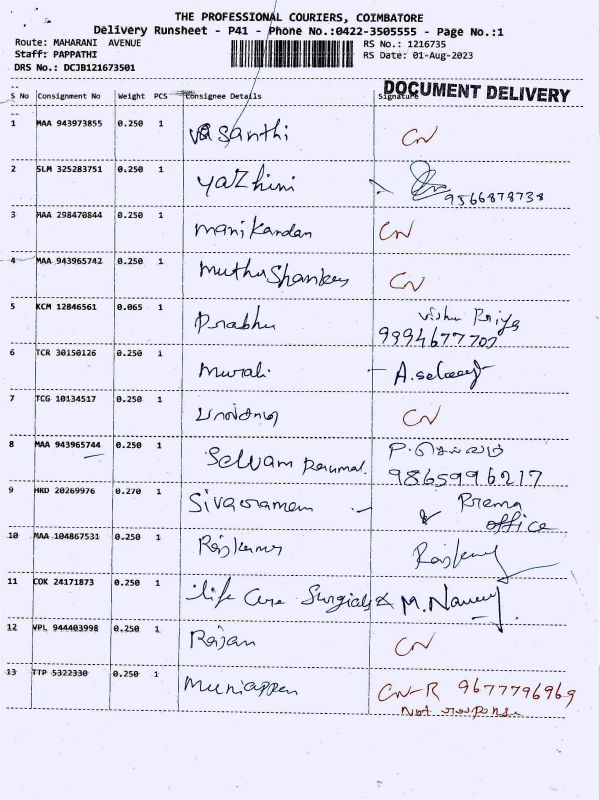 THE PROFESSIONAL COURIERS, COIMBATORE
Delivery Runsheet - P41 - Phone No.:0422-3505555 - Page No.:1
Route: MAHARANI AVENUE RS No.: 1216735
Staff: PAPPATHI RS Date: 01-Aug-2023
DRS No.: DCJB121673501
DOCUMENT DELIVERY
S No Consignment No Weight PCS Consignee Details Signature
1 MAA 943973855 0.250 1 vasanthi CN
2 SLM 325283751 0.250 1 yazhini 9566878738
3 MAA 298470844 0.250 1 manikandan CN
4 MAA 943965742 0.250 1 muthu Shankey CN
5 KCM 12846561 0.065 1 Prabhu Vishu Priya
9994677707
6 TCR 30150126 0.250 1 murali A.
7 TCG 10134517 0.250 1 CN
8 MAA 943965744 0.250 1 Selvam Perumal. P. செல்வம்
9865996217
9 HRD 20269976 0.270 1 Sivaramen Prema
office
10 MAA 104867531 0.250 1 Rajkumar Rajkumar
11 COK 24171873 0.250 1 life Care Surgicals M.
12 VPL 944403998 0.250 1 Rajan CN
13 TTP 5322330 0.250 1 Muniappen CN-R 9677796969
Not response